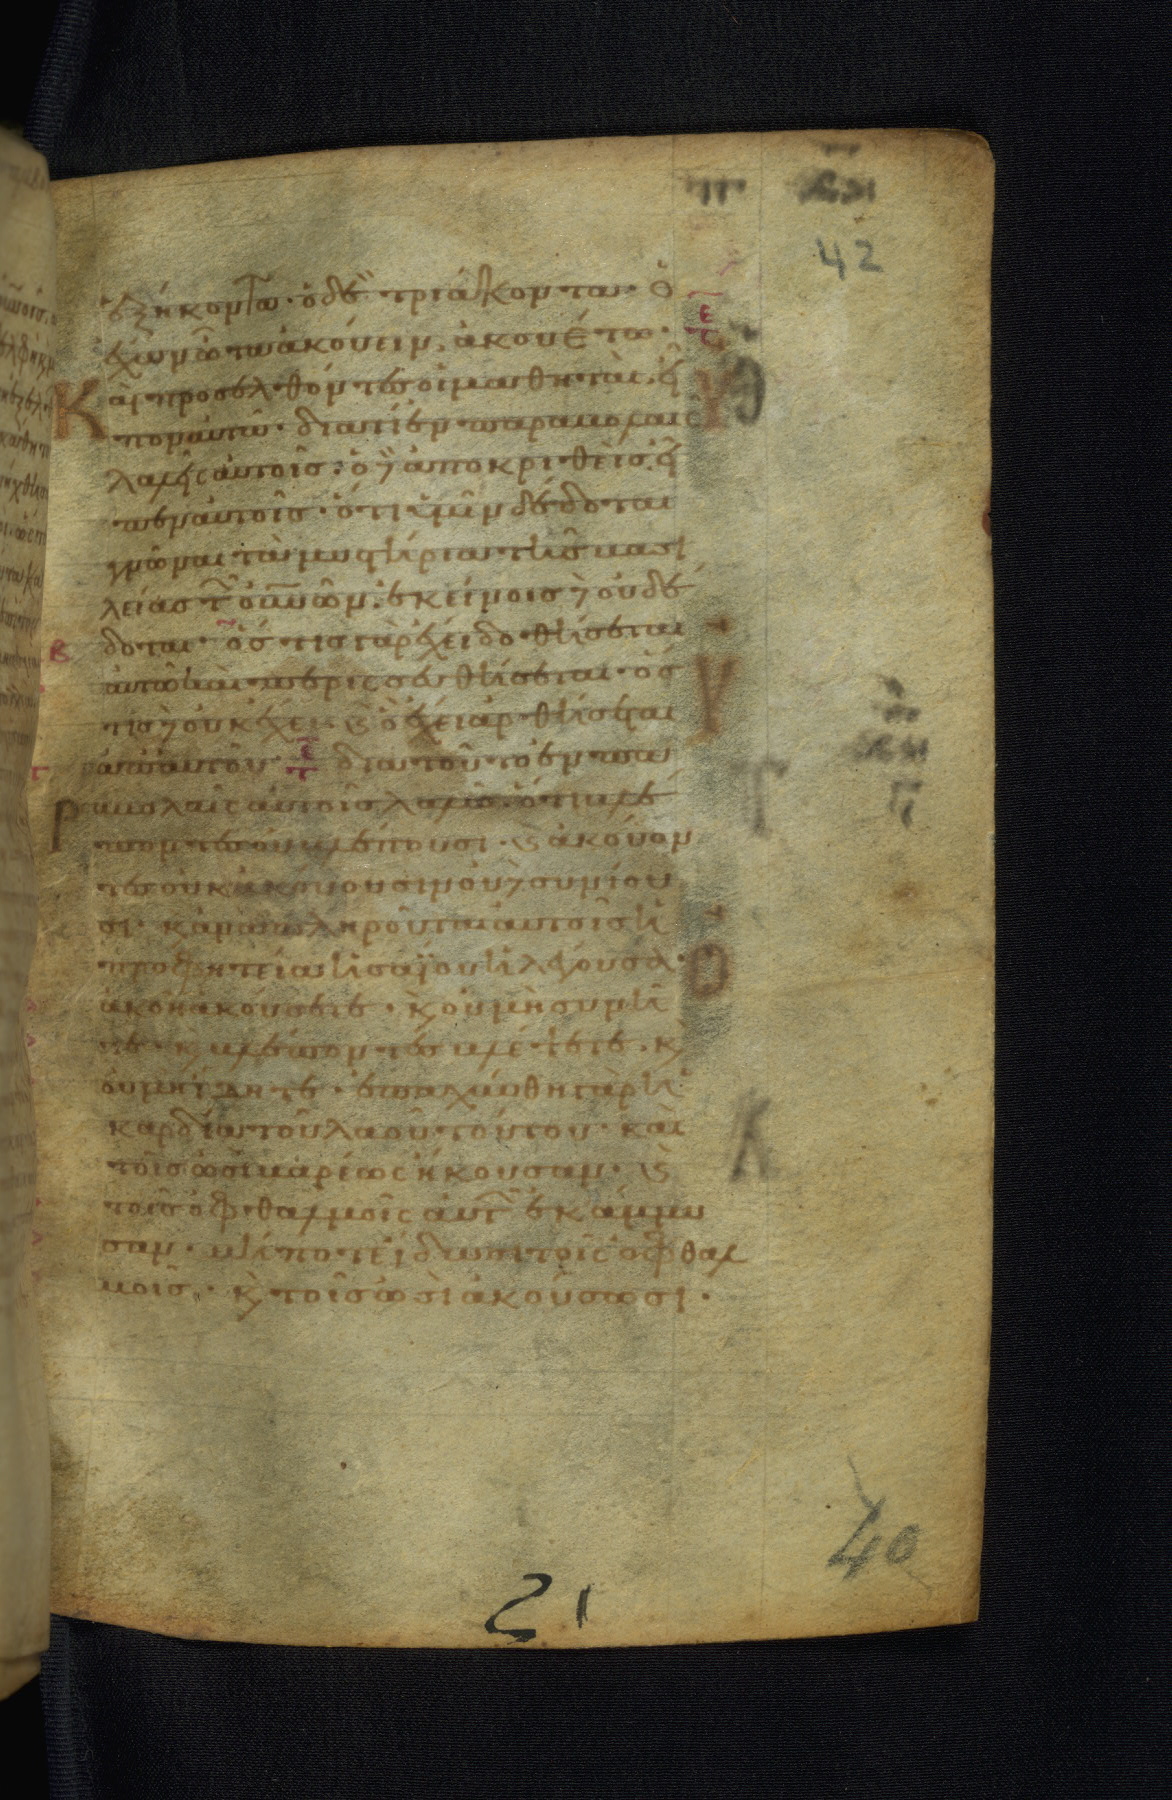 42
ἑξήκοντα· ὁ δὲ τριάκοντα· ὁ
ἔχων ὦτα ἀκούειν, ἀκουέτω·
Καὶ προσελθόντες οἱ μαθηταὶ, εἶ
πον αὐτῶ· διατί ἐν παραβολαῖς
λαλεῖς αὐτοῖς· ὁ δὲ ἀποκριθεὶς, εἶ
πεν αὐτοῖς· ὅτι ὑμῖν δέδοται
γνῶναι τὰ μυστήρια τῆς βασι
λείας τῶν οὐνῶν· ἐκείνοις δὲ οὐ δέ
δοται· ὅστις γὰρ ἔχει δοθήσεται
αὐτῶ καὶ περισσευθήσεται· ὅσ
τις δὲ οὐκ ἔχει, καὶ ὃ ἔχει ἀρθήσεται
ἀπ᾽ αὐτοῦ· διὰ τοῦτο ἐν πα
ραβολαῖς αὐτοῖς λαλῶ· ὅτι βλέ
ποντες οὐ βλέπουσι· καὶ ἀκούον
τες οὐκ ἀκούουσιν οὐδὲ συνίου
σι· καὶ ἀναπληροῦται αὐτοῖς ἡ
προφητεία ἡσαΐου ἡ λέγουσα·
ἀκοῆ ἀκούσετε· καὶ οὐ μὴ συνῆ
τε· καὶ βλέποντες βλέψετε· καὶ
οὐ μὴ ἴδητε· ἐπαχύνθη γὰρ ἡ
καρδία τοῦ λαοῦ τούτου· καὶ
τοῖς ὠσὶ βαρέως ἤκουσαν· καὶ
τοῖς ὀφθαλμοῖς αὐτῶν ἐκάμμυ
σαν· μήποτε ἴδωσι τοῖς ὀφθαλ
μοῖς· καὶ τοῖς ὠσὶ ἀκούσωσι·
40
21